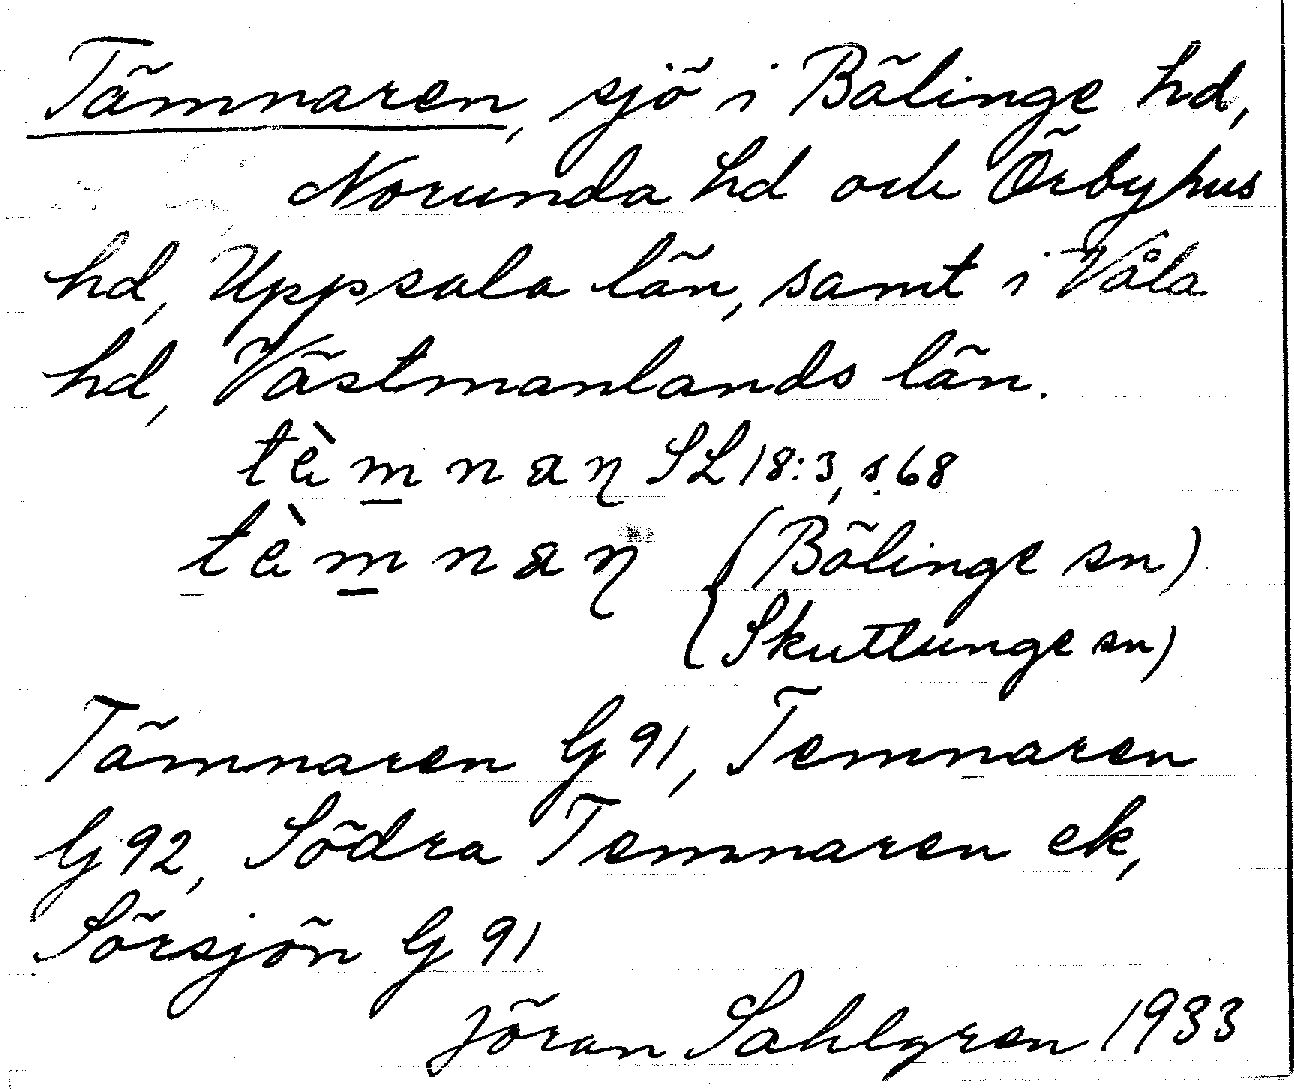 Tämnaren, sjö i Bälinge hd,
Norunda hd och Örbyhus
hd, Uppsala län, samt i Våla
hd, Västmanlands län.
tèmnaṇ SL 18:3, s. 68
tèmnaṇ (Bälinge sn)
(Skuttunge sn)
Tämnaren G 91, Temnaren
G 92, Södra Temnaren ek,
Sörsjön G 91
Jöran Sahlgren 1933